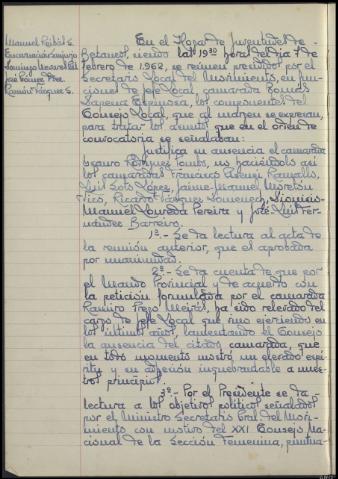 Manuel
En el Hogar de Juventudes de
Betanzos, siendo las 19'30 horas del día 7 de
febrero de 1.962, se reunen presididos por el
Secretario Local del Movimiento, en fun-
ciones de Jefe Local, camarada Tomás
Espinosa, los componentes del
Consejo Local, que al margen se expresan,
para tratar los asuntos que en el orden de
convocatoria se señalaban:
Justifica su ausencia el camarada
no haciéndolo así
los camaradas Francisco
Luis Soto López, Jaime-Manuel
Ricardo Vázquez
Manuel Loureda Pereira y José-Luis Fer-
nández Barreiro.
1º.- Se da lectura al acta de
la reunión anterior, que es aprobada
por unanimidad.
2º.- Se da cuenta de que por
el Mando Provincial y de acuerdo con
la petición formulada por el camarada
Ramiro ha sido relevado del
cargo de Jefe Local que vino ejerciendo en
los últimos años, lamentando el Consejo
la ausencia del citado camarada, que
en todo momento mostró un elevado espí-
ritu y su adhesión inquebrantable a nues-
tros principios.
3º.- Por el Presidente se da
lectura a los objetivos políticos señalados
por el Ministro Secretario Gral. del Movi-
miento con motivo del XXI Consejo Na-
cional de la Sección Femenina,